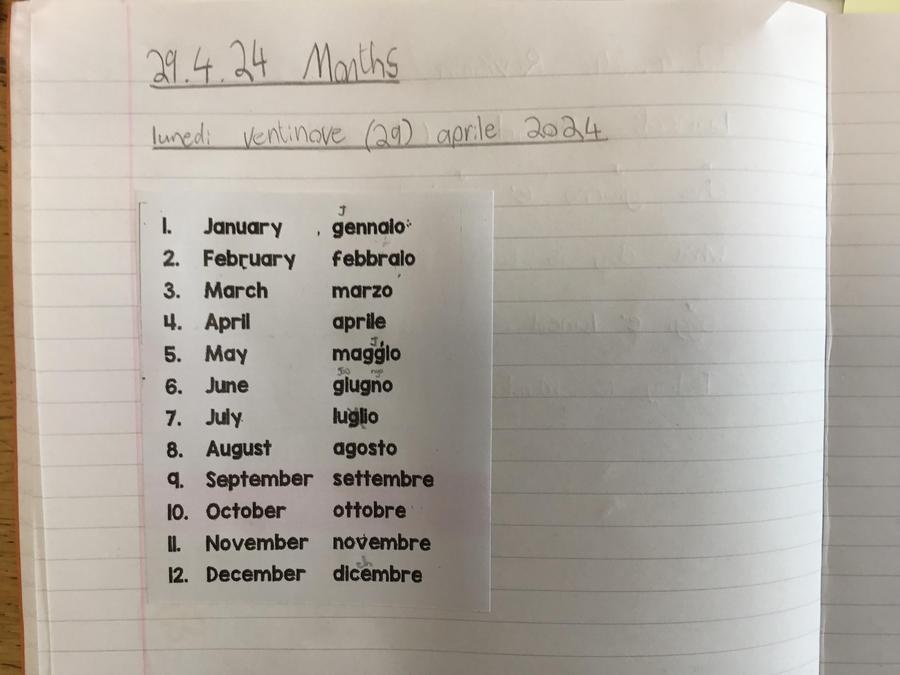 29.4.24 Months
lunedi ventinove (29) aprile 2024
J
1. January gennaio
2. February febbraio
3. March marzo
4. April aprile
J
5. May maggio
joo nyo
6. June giugno
7. July luglio
8. August agosto
9. September settembre
10. October ottobre
11. November novembre
ch
12. December dicembre